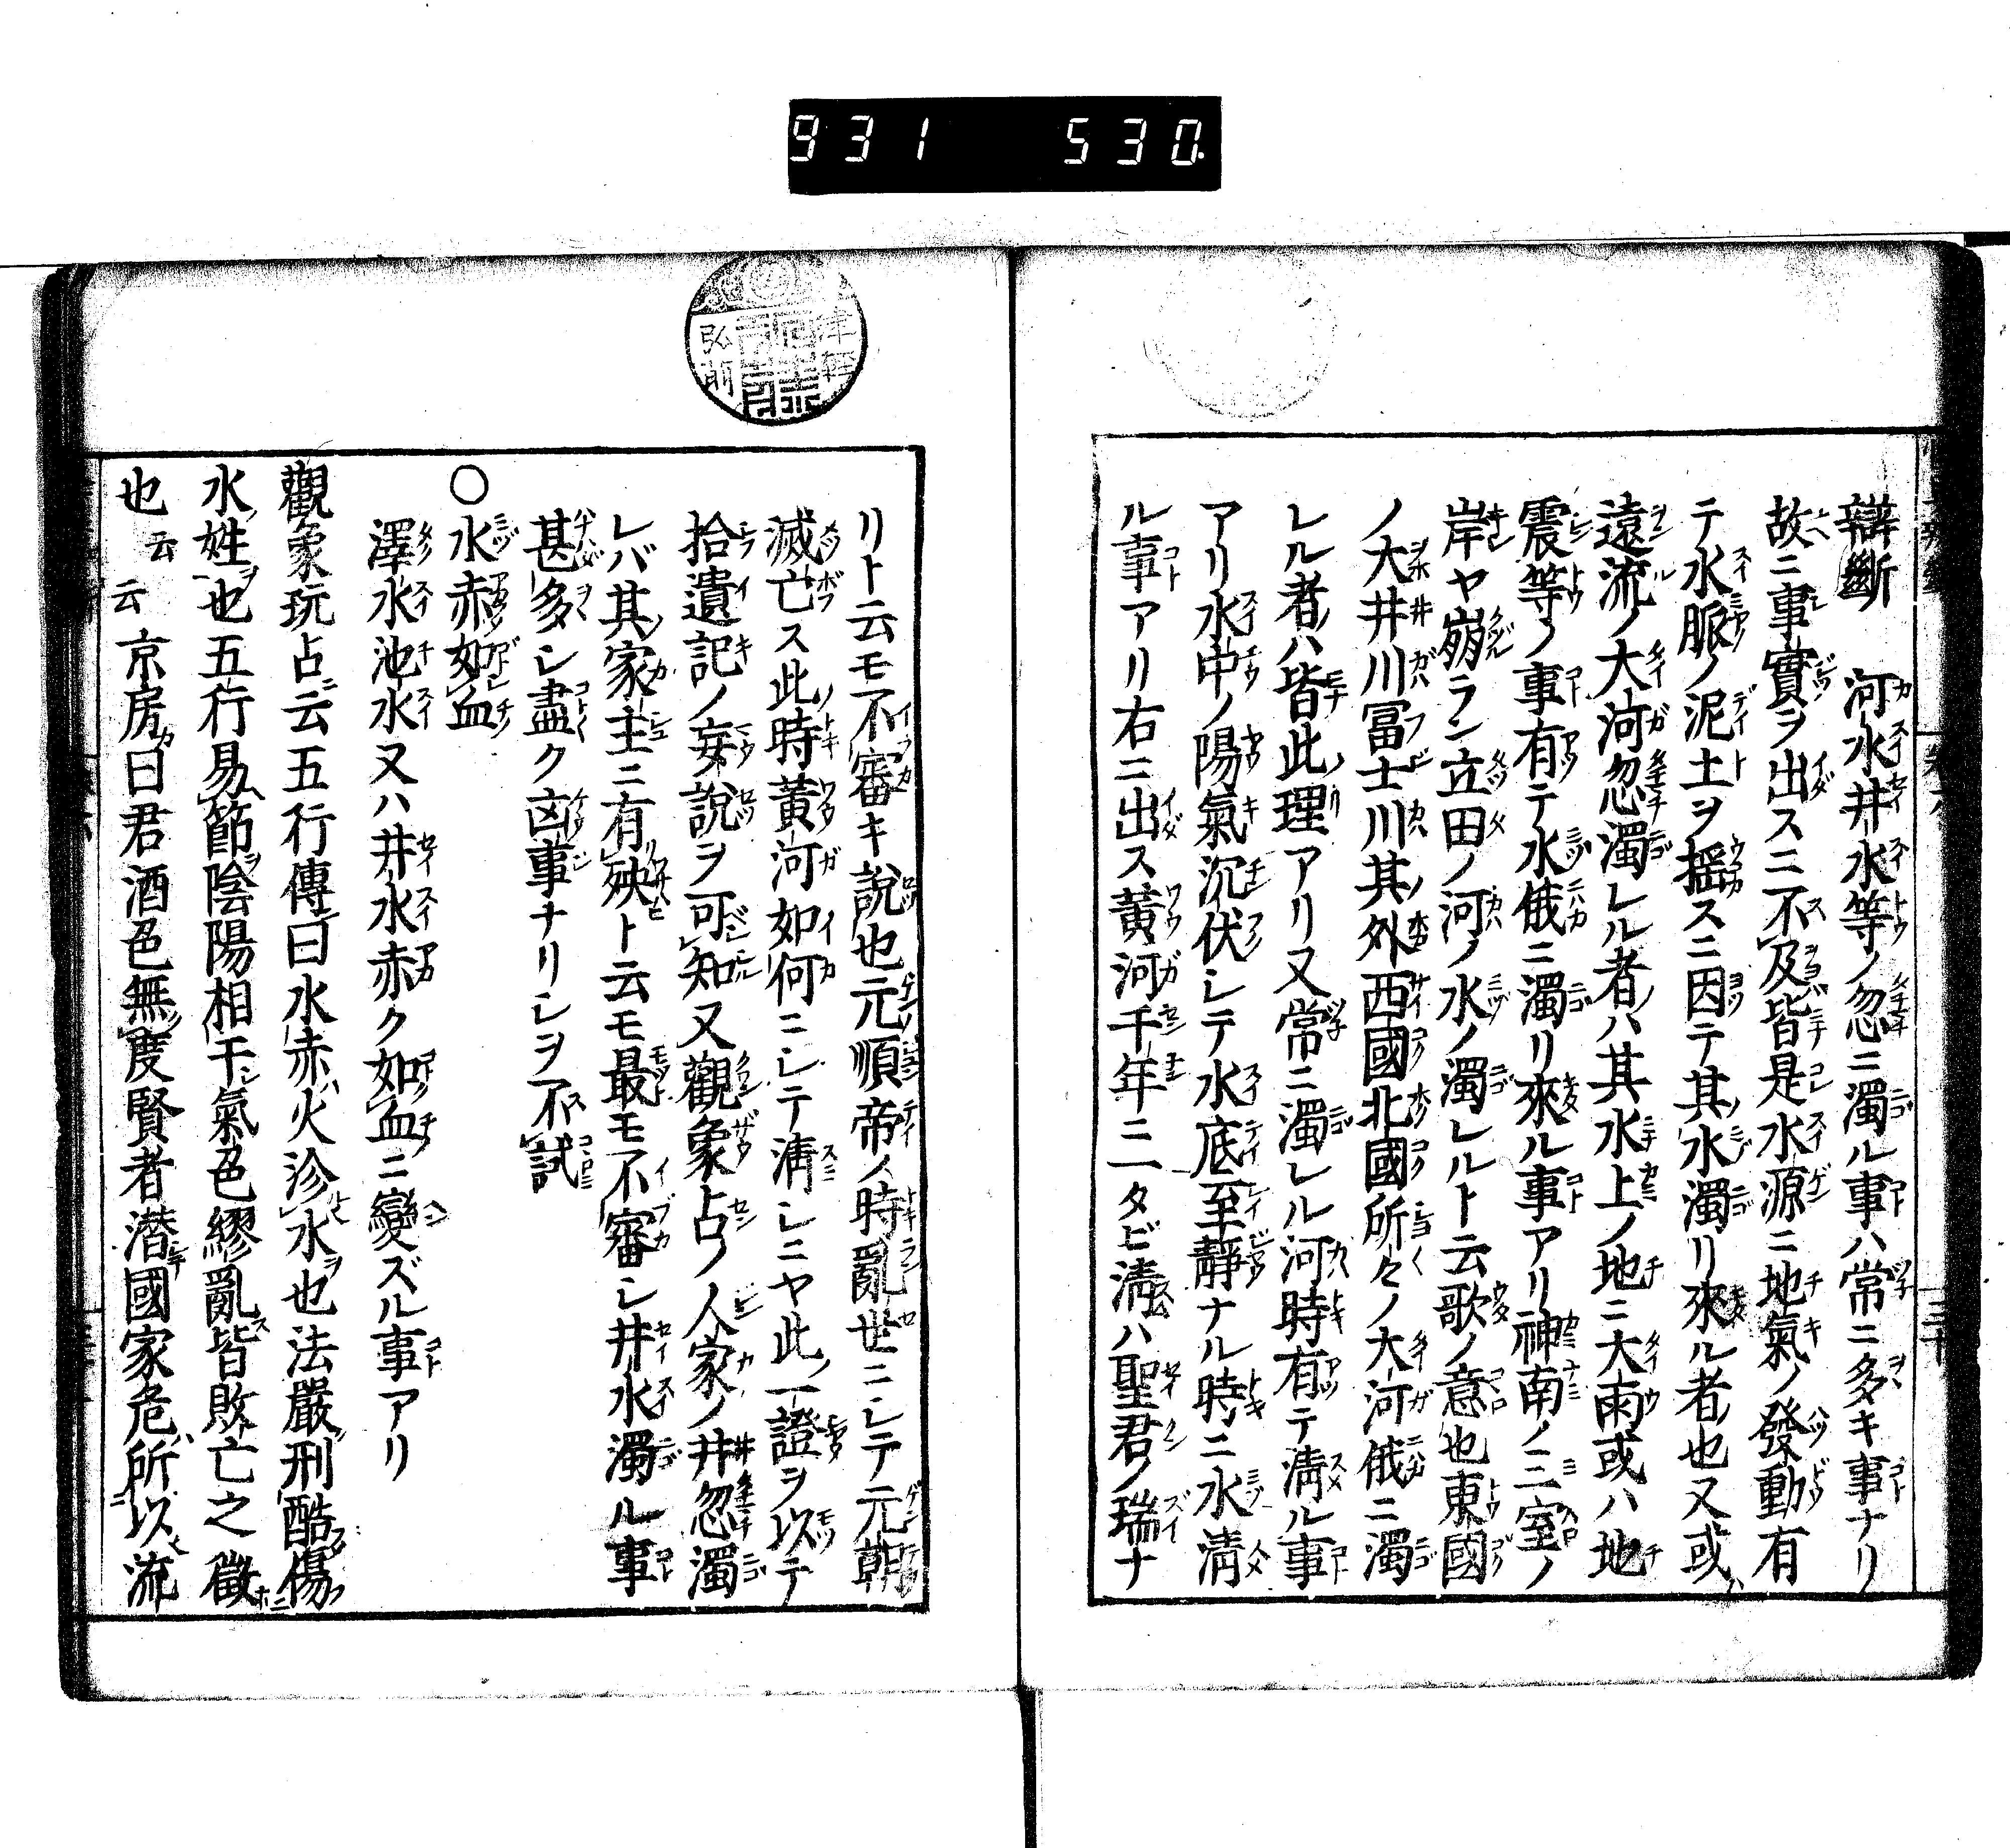 931 530
辯斷 河水井水等ノ忽ニ濁ル事ハ常ニ多キ事ナリ
故ニ事實ヲ出スニ不及皆是水源ニ地氣ノ發動有
テ水脈ノ泥土ヲ揺スニ因テ其水濁リ來ル者也又或ハ
遠流ノ大河忽濁レル者ハ其水上ノ地ニ大雨或ハ地
震等ノ事有テ水俄ニ濁リ來ル事アリ神南ノ三室ノ
岸ヤ崩ラン立田ノ河ノ水ノ濁レルト云歌ノ意也東國
ノ大井川冨士川其外西國北國所々ノ大河俄ニ濁
レル者ハ皆此理アリ又常ニ濁レル河時有テ淸ル事
アリ水中ノ陽氣沉伏シテ水底至靜ナル時ニ水淸
ル事アリ右ニ出ス黃河千年ニ一タビ淸ハ聖君ノ瑞ナ
リト云モ不審キ說也元順帝ノ時亂世ニシテ元朝
滅亡ス此時黃河如何ニシテ淸シニヤ此一證ヲ以テ
拾遺記ノ妄說ヲ可知又觀象占ノ人家ノ井忽濁
レバ其家主ニ有殃ト云モ最モ不審シ井水濁ル事
甚多シ盡ク凶事ナリシヲ不試
○水赤如血
澤水池水又ハ井水赤ク如血ニ變ズル事アリ
觀象玩占云五行傳曰水赤火沴水也法嚴刑酷傷
水姓也五行易節陰陽相干氣色繆亂皆敗亡之徵
也云云京房曰君酒色無度賢者潜國家危所以流
弘前
津軽